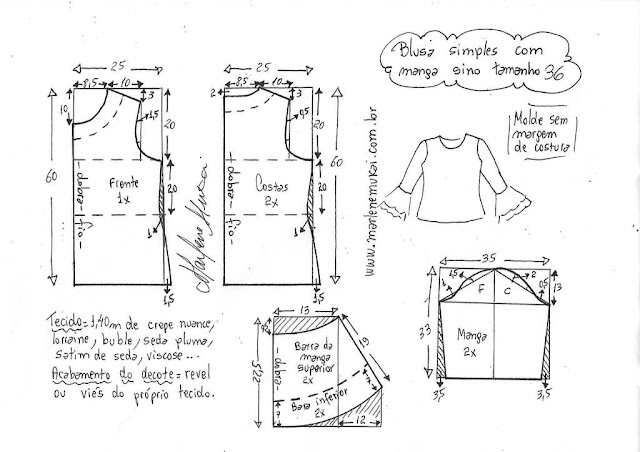 Blusa simples com
manga sino tamanho 36
Molde sem
margem
de costura
25
8,5
10
3
10
1,5
20
60
20
Frente
1x
- dobra - fio -
1
1,5
Marlene Mukai
25
8,5
10
2
3
0,5
20
60
20
Costas
2x
- dobra - fio -
1
1,5
www.marlenemukai.com.br
35
1,5
2
1
F
C
0,5
13
33
Manga
2x
3,5
3,5
Tecido = 1,40m de crepe nuance,
lorraine, buble, seda pluma,
satim de seda, viscose...
Acabamento do decote = revel
ou viés do próprio tecido.
13
22,5
- dobra -
Barra da
manga
superior
2x
Barra inferior
2x
7
7
12